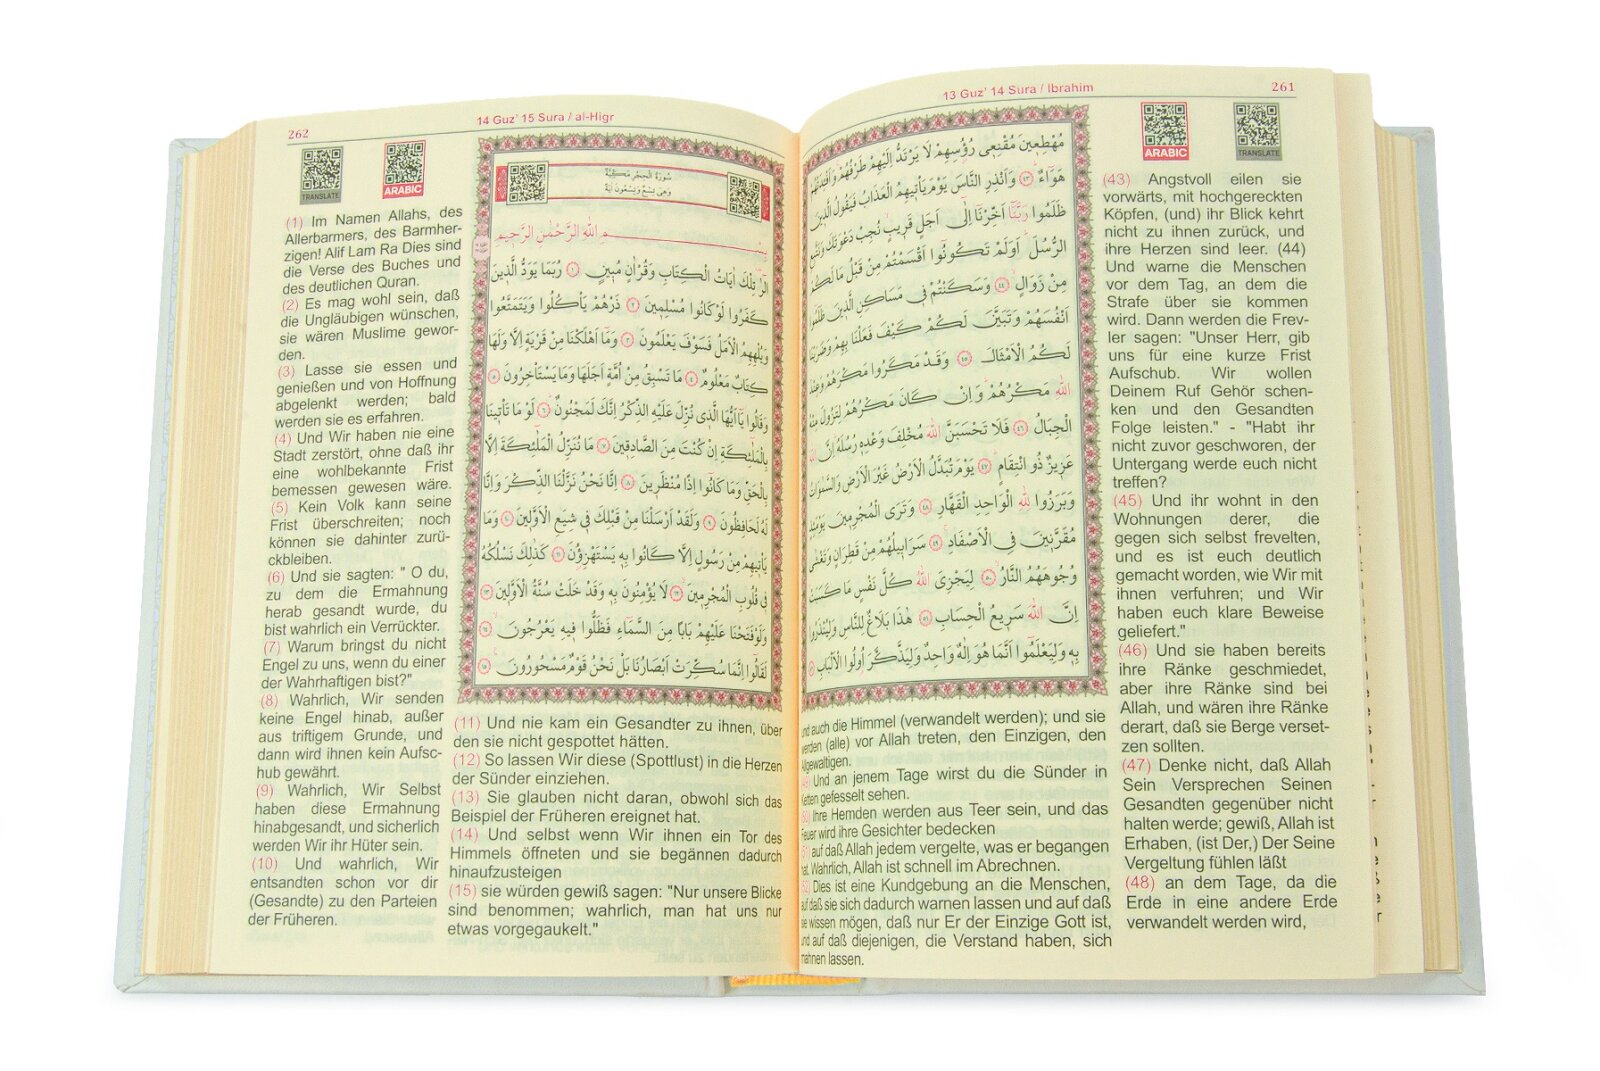 13 Guz' 14 Sura / Ibrahim
261
ARABIC
TRANSLATE
مُهْطِعِينَ مُقْنِعِى رُؤُسِهِمْ لَا يَرْتَدُّ اِلَيْهِمْ طَرْفُهُمْ وَاَفْئِدَتُهُمْ
هَوَاءٌ ٤٣ وَاَنْذِرِ النَّاسَ يَوْمَ يَأْتِيهِمُ الْعَذَابُ فَيَقُولُ الَّذِينَ
ظَلَمُوا رَبَّنَا اَخِّرْنَا اِلٰى اَجَلٍ قَرِيبٍ نُجِبْ دَعْوَتَكَ وَنَتَّبِعِ
الرُّسُلَ اَوَلَمْ تَكُونُوا اَقْسَمْتُمْ مِنْ قَبْلُ مَا لَكُمْ
مِنْ زَوَالٍ ٤٤ وَسَكَنْتُمْ فِى مَسَاكِنِ الَّذِينَ ظَلَمُوا
اَنْفُسَهُمْ وَتَبَيَّنَ لَكُمْ كَيْفَ فَعَلْنَا بِهِمْ وَضَرَبْنَا
لَكُمُ الْاَمْثَالَ ٤٥ وَقَدْ مَكَرُوا مَكْرَهُمْ وَعِنْدَ
اللّٰهِ مَكْرُهُمْ وَاِنْ كَانَ مَكْرُهُمْ لِتَزُولَ مِنْهُ
الْجِبَالُ ٤٦ فَلَا تَحْسَبَنَّ اللّٰهَ مُخْلِفَ وَعْدِهِ رُسُلَهُ اِنَّ اللّٰهَ
عَزِيزٌ ذُو انْتِقَامٍ ٤٧ يَوْمَ تُبَدَّلُ الْاَرْضُ غَيْرَ الْاَرْضِ وَالسَّمٰوَاتُ
وَبَرَزُوا لِلّٰهِ الْوَاحِدِ الْقَهَّارِ ٤٨ وَتَرَى الْمُجْرِمِينَ يَوْمَئِذٍ
مُقَرَّنِينَ فِى الْاَصْفَادِ ٤٩ سَرَابِيلُهُمْ مِنْ قَطِرَانٍ وَتَغْشٰى
وُجُوهَهُمُ النَّارُ ٥٠ لِيَجْزِىَ اللّٰهُ كُلَّ نَفْسٍ مَا كَسَبَتْ
اِنَّ اللّٰهَ سَرِيعُ الْحِسَابِ ٥١ هٰذَا بَلَاغٌ لِلنَّاسِ وَلِيُنْذَرُوا
بِهِ وَلِيَعْلَمُوا اَنَّمَا هُوَ اِلٰهٌ وَاحِدٌ وَلِيَذَّكَّرَ اُولُوا الْاَلْبَابِ ٥٢
(43) Angstvoll eilen sie
vorwärts, mit hochgereckten
Köpfen, (und) ihr Blick kehrt
nicht zu ihnen zurück, und
ihre Herzen sind leer. (44)
Und warne die Menschen
vor dem Tag, an dem die
Strafe über sie kommen
wird. Dann werden die Frev-
ler sagen: "Unser Herr, gib
uns für eine kurze Frist
Aufschub. Wir wollen
Deinem Ruf Gehör schen-
ken und den Gesandten
Folge leisten." - "Habt ihr
nicht zuvor geschworen, der
Untergang werde euch nicht
treffen?
(45) Und ihr wohnt in den
Wohnungen derer, die
gegen sich selbst frevelten,
und es ist euch deutlich
gemacht worden, wie Wir mit
ihnen verfuhren; und Wir
haben euch klare Beweise
geliefert."
(46) Und sie haben bereits
ihre Ränke geschmiedet,
aber ihre Ränke sind bei
Allah, und wären ihre Ränke
derart, daß sie Berge verset-
zen sollten.
(47) Denke nicht, daß Allah
Sein Versprechen Seinen
Gesandten gegenüber nicht
halten werde; gewiß, Allah ist
Erhaben, (ist Der,) Der Seine
Vergeltung fühlen läßt
(48) an dem Tage, da die
Erde in eine andere Erde
verwandelt werden wird,
und auch die Himmel (verwandelt werden); und sie
werden (alle) vor Allah treten, den Einzigen, den
Allgewaltigen.
(49) Und an jenem Tage wirst du die Sünder in
Ketten gefesselt sehen.
(50) Ihre Hemden werden aus Teer sein, und das
Feuer wird ihre Gesichter bedecken
(51) auf daß Allah jedem vergelte, was er begangen
hat. Wahrlich, Allah ist schnell im Abrechnen.
(52) Dies ist eine Kundgebung an die Menschen,
auf daß sie sich dadurch warnen lassen und auf daß
sie wissen mögen, daß nur Er der Einzige Gott ist,
und auf daß diejenigen, die Verstand haben, sich
mahnen lassen.
262
14 Guz' 15 Sura / al-Higr
TRANSLATE
ARABIC
سُورَةُ الْحِجْرِ مَكِّيَّةٌ
وَهِىَ تِسْعٌ وَتِسْعُونَ اٰيَةً
بِسْمِ اللّٰهِ الرَّحْمٰنِ الرَّحِيمِ
الٓرٰ تِلْكَ اٰيَاتُ الْكِتَابِ وَقُرْاٰنٍ مُبِينٍ ١ رُبَمَا يَوَدُّ الَّذِينَ
كَفَرُوا لَوْ كَانُوا مُسْلِمِينَ ٢ ذَرْهُمْ يَأْكُلُوا وَيَتَمَتَّعُوا
وَيُلْهِهِمُ الْاَمَلُ فَسَوْفَ يَعْلَمُونَ ٣ وَمَا اَهْلَكْنَا مِنْ قَرْيَةٍ اِلَّا وَلَهَا
كِتَابٌ مَعْلُومٌ ٤ مَا تَسْبِقُ مِنْ اُمَّةٍ اَجَلَهَا وَمَا يَسْتَأْخِرُونَ ٥
وَقَالُوا يَا اَيُّهَا الَّذِى نُزِّلَ عَلَيْهِ الذِّكْرُ اِنَّكَ لَمَجْنُونٌ ٦ لَوْ مَا تَأْتِينَا
بِالْمَلٰئِكَةِ اِنْ كُنْتَ مِنَ الصَّادِقِينَ ٧ مَا نُنَزِّلُ الْمَلٰئِكَةَ اِلَّا
بِالْحَقِّ وَمَا كَانُوا اِذًا مُنْظَرِينَ ٨ اِنَّا نَحْنُ نَزَّلْنَا الذِّكْرَ وَاِنَّا
لَهُ لَحَافِظُونَ ٩ وَلَقَدْ اَرْسَلْنَا مِنْ قَبْلِكَ فِى شِيَعِ الْاَوَّلِينَ ١٠ وَمَا
يَأْتِيهِمْ مِنْ رَسُولٍ اِلَّا كَانُوا بِهِ يَسْتَهْزِؤُنَ ١١ كَذٰلِكَ نَسْلُكُهُ
فِى قُلُوبِ الْمُجْرِمِينَ ١٢ لَا يُؤْمِنُونَ بِهِ وَقَدْ خَلَتْ سُنَّةُ الْاَوَّلِينَ ١٣
وَلَوْ فَتَحْنَا عَلَيْهِمْ بَابًا مِنَ السَّمَاءِ فَظَلُّوا فِيهِ يَعْرُجُونَ ١٤
لَقَالُوا اِنَّمَا سُكِّرَتْ اَبْصَارُنَا بَلْ نَحْنُ قَوْمٌ مَسْحُورُونَ ١٥
(1) Im Namen Allahs, des
Allerbarmers, des Barmher-
zigen! Alif Lam Ra Dies sind
die Verse des Buches und
des deutlichen Quran.
(2) Es mag wohl sein, daß
die Ungläubigen wünschen,
sie wären Muslime gewor-
den.
(3) Lasse sie essen und
genießen und von Hoffnung
abgelenkt werden; bald
werden sie es erfahren.
(4) Und Wir haben nie eine
Stadt zerstört, ohne daß ihr
eine wohlbekannte Frist
bemessen gewesen wäre.
(5) Kein Volk kann seine
Frist überschreiten; noch
können sie dahinter zurü-
ckbleiben.
(6) Und sie sagten: " O du,
zu dem die Ermahnung
herab gesandt wurde, du
bist wahrlich ein Verrückter.
(7) Warum bringst du nicht
Engel zu uns, wenn du einer
der Wahrhaftigen bist?"
(8) Wahrlich, Wir senden
keine Engel hinab, außer
aus triftigem Grunde, und
dann wird ihnen kein Aufsc-
hub gewährt.
(9) Wahrlich, Wir Selbst
haben diese Ermahnung
hinabgesandt, und sicherlich
werden Wir ihr Hüter sein.
(10) Und wahrlich, Wir
entsandten schon vor dir
(Gesandte) zu den Parteien
der Früheren.
(11) Und nie kam ein Gesandter zu ihnen, über
den sie nicht gespottet hätten.
(12) So lassen Wir diese (Spottlust) in die Herzen
der Sünder einziehen.
(13) Sie glauben nicht daran, obwohl sich das
Beispiel der Früheren ereignet hat.
(14) Und selbst wenn Wir ihnen ein Tor des
Himmels öffneten und sie begännen dadurch
hinaufzusteigen
(15) sie würden gewiß sagen: "Nur unsere Blicke
sind benommen; wahrlich, man hat uns nur
etwas vorgegaukelt."